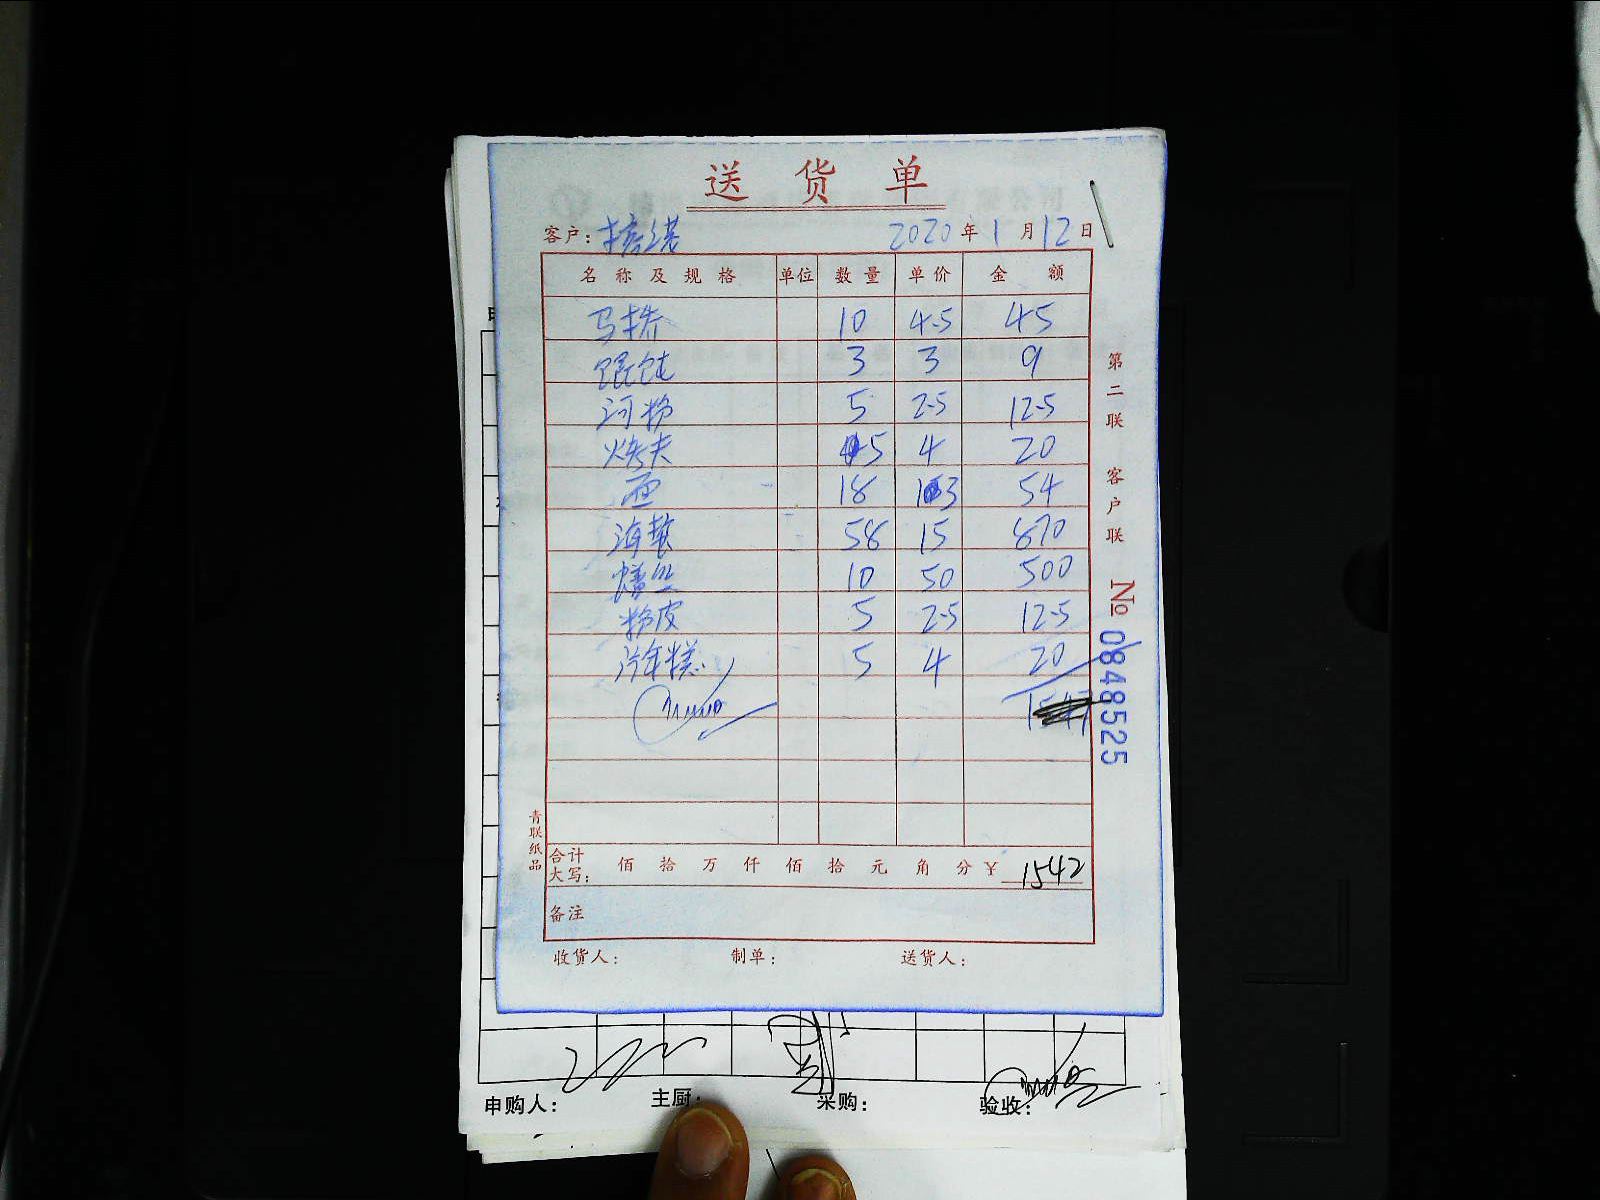 送货单
客户： 2020年1月12日
名称及规格 单位 数量 单价 金额
马桥 10 4.5 45
馄饨 3 3 9
河粉 5 2.5 12.5
烤夫 5 4 20
面 18 3 54
海蜇 58 15 870
鳝丝 10 50 500
粉皮 5 2.5 12.5
年糕 5 4 20
合计大写： 佰拾万仟佰拾元角分 ¥ 1542
备注
收货人： 制单： 送货人：
第二联 客户联
No 0848525
青联纸品
申购人： 主厨： 采购： 验收：